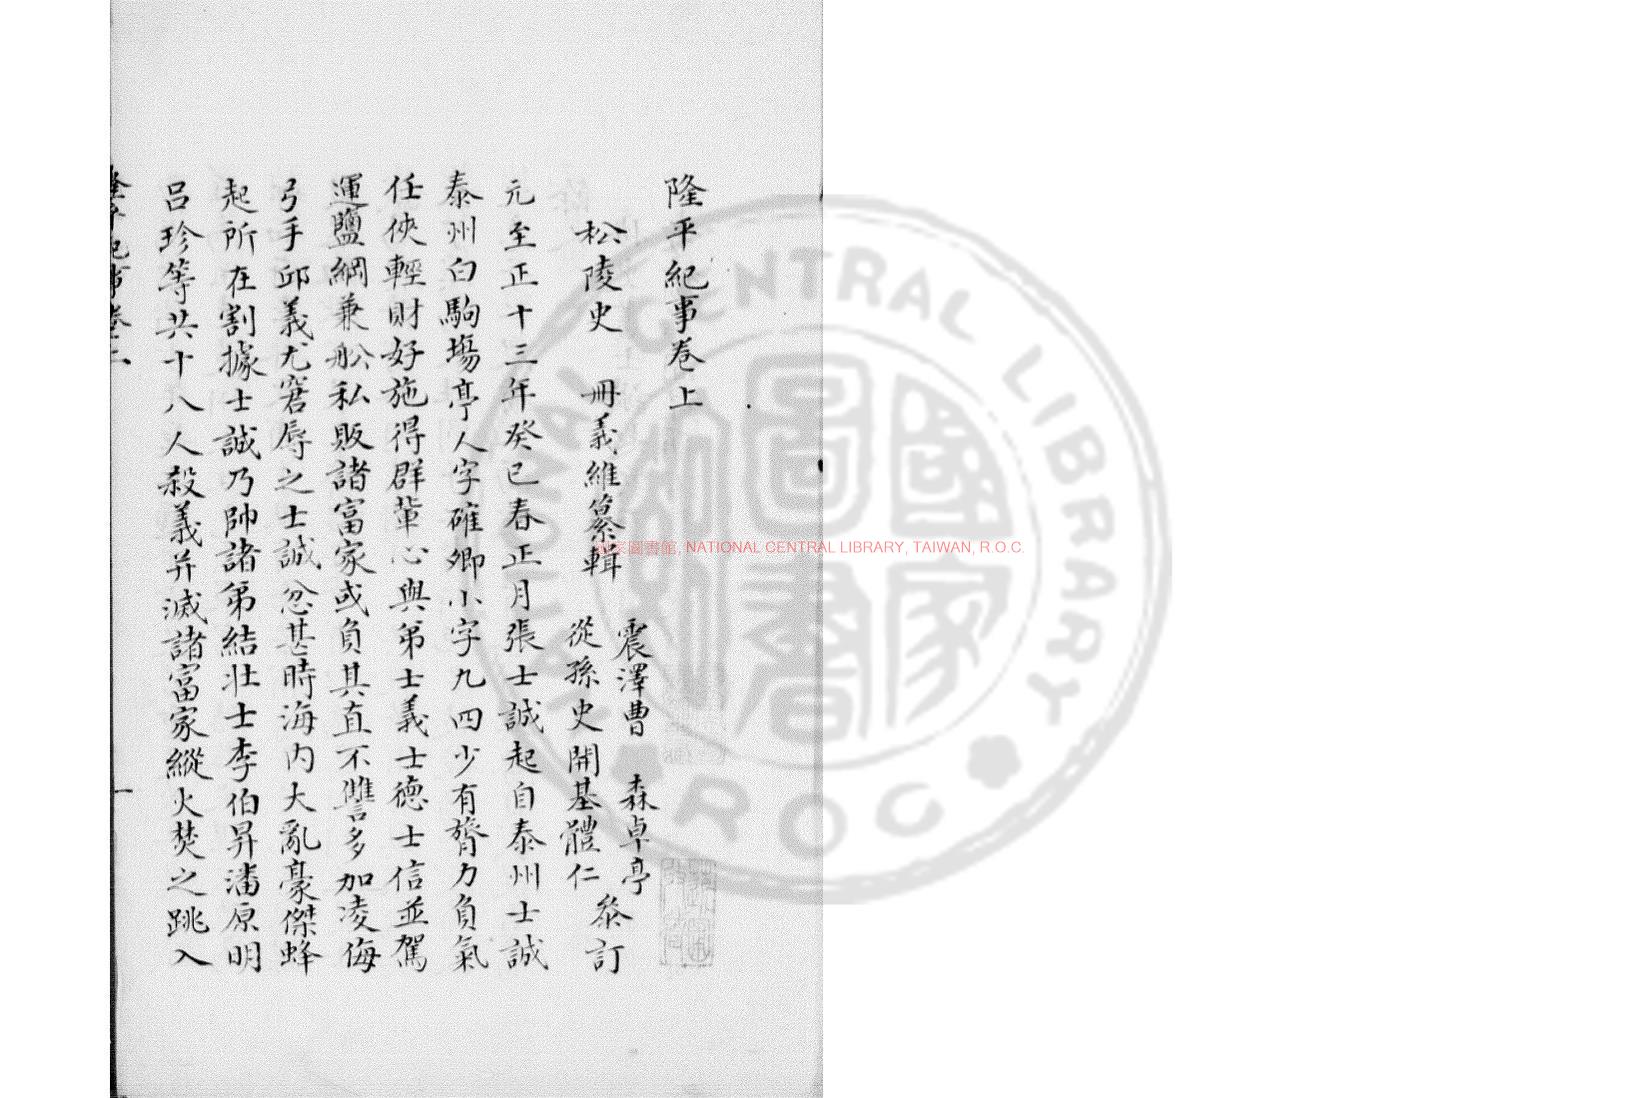 隆平紀事卷上
松陵史　冊義維纂輯
震澤曹　森卓亭
從孫史開基體仁
叅訂
元至正十三年癸巳春正月張士誠起自泰州士誠
泰州白駒塲亭人字確卿小字九四少有膂力負氣
任俠輕財好施得群輩心與弟士義士德士信並駕
運鹽綱兼舩私販諸富家或負其直不讐多加凌侮
弓手邱義尤窘辱之士誠忿甚時海內大亂豪傑蜂
起所在割據士誠乃帥諸弟結壯士李伯昇潘原明
呂珍等共十八人殺義并滅諸富家縱火焚之跳入
一
國家圖書館, NATIONAL CENTRAL LIBRARY, TAIWAN, R.O.C.
NATIONAL CENTRAL LIBRARY
TAIWAN R.O.C
國家圖書館